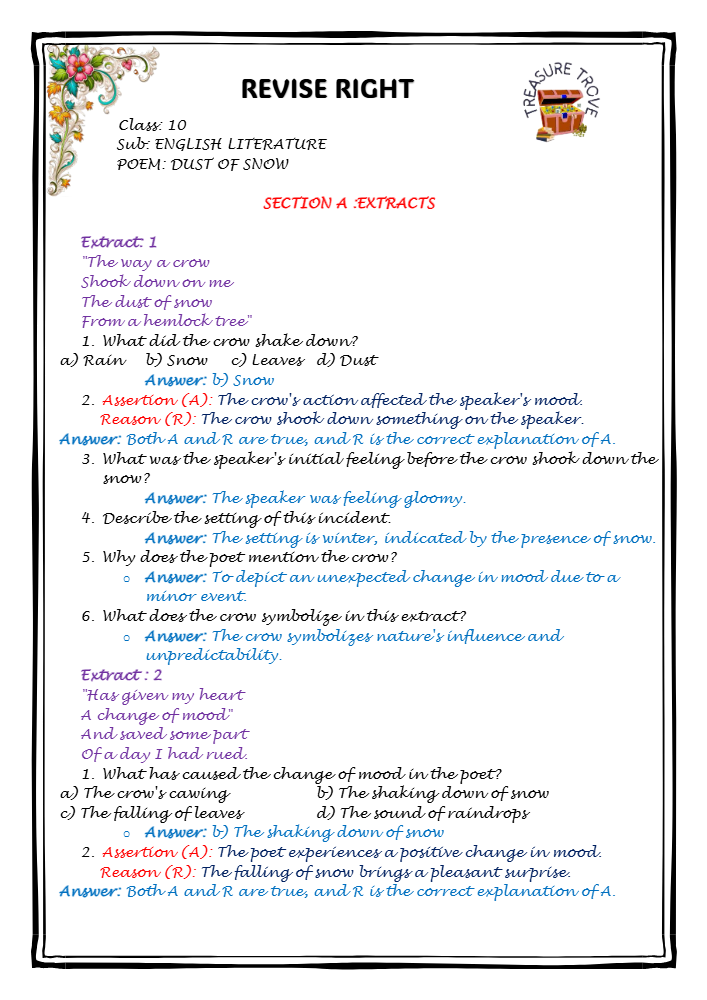 REVISE RIGHT
TREASURE TROVE
Class: 10
Sub: ENGLISH LITERATURE
POEM: DUST OF SNOW
SECTION A :EXTRACTS
Extract: 1
"The way a crow
Shook down on me
The dust of snow
From a hemlock tree"
1. What did the crow shake down?
a) Rain b) Snow c) Leaves d) Dust
Answer: b) Snow
2. Assertion (A): The crow's action affected the speaker's mood.
Reason (R): The crow shook down something on the speaker.
Answer: Both A and R are true, and R is the correct explanation of A.
3. What was the speaker's initial feeling before the crow shook down the
snow?
Answer: The speaker was feeling gloomy.
4. Describe the setting of this incident.
Answer: The setting is winter, indicated by the presence of snow.
5. Why does the poet mention the crow?
o Answer: To depict an unexpected change in mood due to a
minor event.
6. What does the crow symbolize in this extract?
o Answer: The crow symbolizes nature's influence and
unpredictability.
Extract : 2
"Has given my heart
A change of mood"
And saved some part
Of a day I had rued.
1. What has caused the change of mood in the poet?
a) The crow's cawing b) The shaking down of snow
c) The falling of leaves d) The sound of raindrops
o Answer: b) The shaking down of snow
2. Assertion (A): The poet experiences a positive change in mood.
Reason (R): The falling of snow brings a pleasant surprise.
Answer: Both A and R are true, and R is the correct explanation of A.